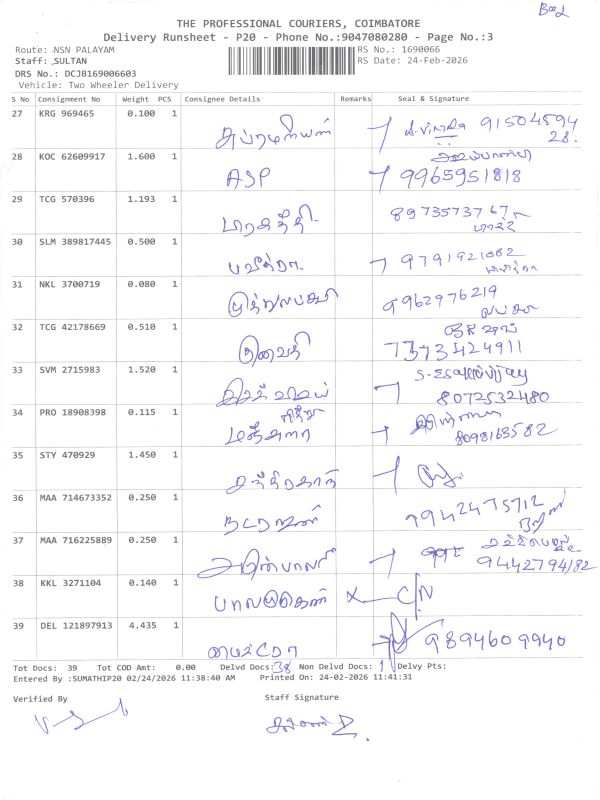 THE PROFESSIONAL COURIERS, COIMBATORE
Delivery Runsheet - P20 - Phone No.:9047080280 - Page No.:3
Route: NSN PALAYAM RS No.: 1690066
Staff: SULTAN RS Date: 24-Feb-2026
DRS No.: DCJB169006603
Vehicle: Two Wheeler Delivery
S No Consignment No Weight PCS Consignee Details Remarks Seal & Signature
27 KRG 969465 0.100 1 91504594
28.
28 KOC 62609917 1.600 1
ASP 9965951818
29 TCG 570396 1.193 1 897357376
30 SLM 389817445 0.500 1
பவித்ரா 9791921082
31 NKL 3700719 0.080 1
முத்துலட்சுமி 9962976219
32 TCG 42178669 0.510 1
ரேவதி 7373424911
33 SVM 2715983 1.520 1
8072532480
34 PRO 18908398 0.115 1
8098163582
35 STY 470929 1.450 1
36 MAA 714673352 0.250 1
நடராஜன் 9442475712
37 MAA 716225889 0.250 1
9442794182
38 KKL 3271104 0.140 1
பாலமுருகன் C/N
39 DEL 121897913 4.435 1
9894609940
Tot Docs: 39 Tot COD Amt: 0.00 Delvd Docs: 38 Non Delvd Docs: 1 Delvy Pts:
Entered By :SUMATHIP20 02/24/2026 11:38:40 AM Printed On: 24-02-2026 11:41:31
Verified By Staff Signature